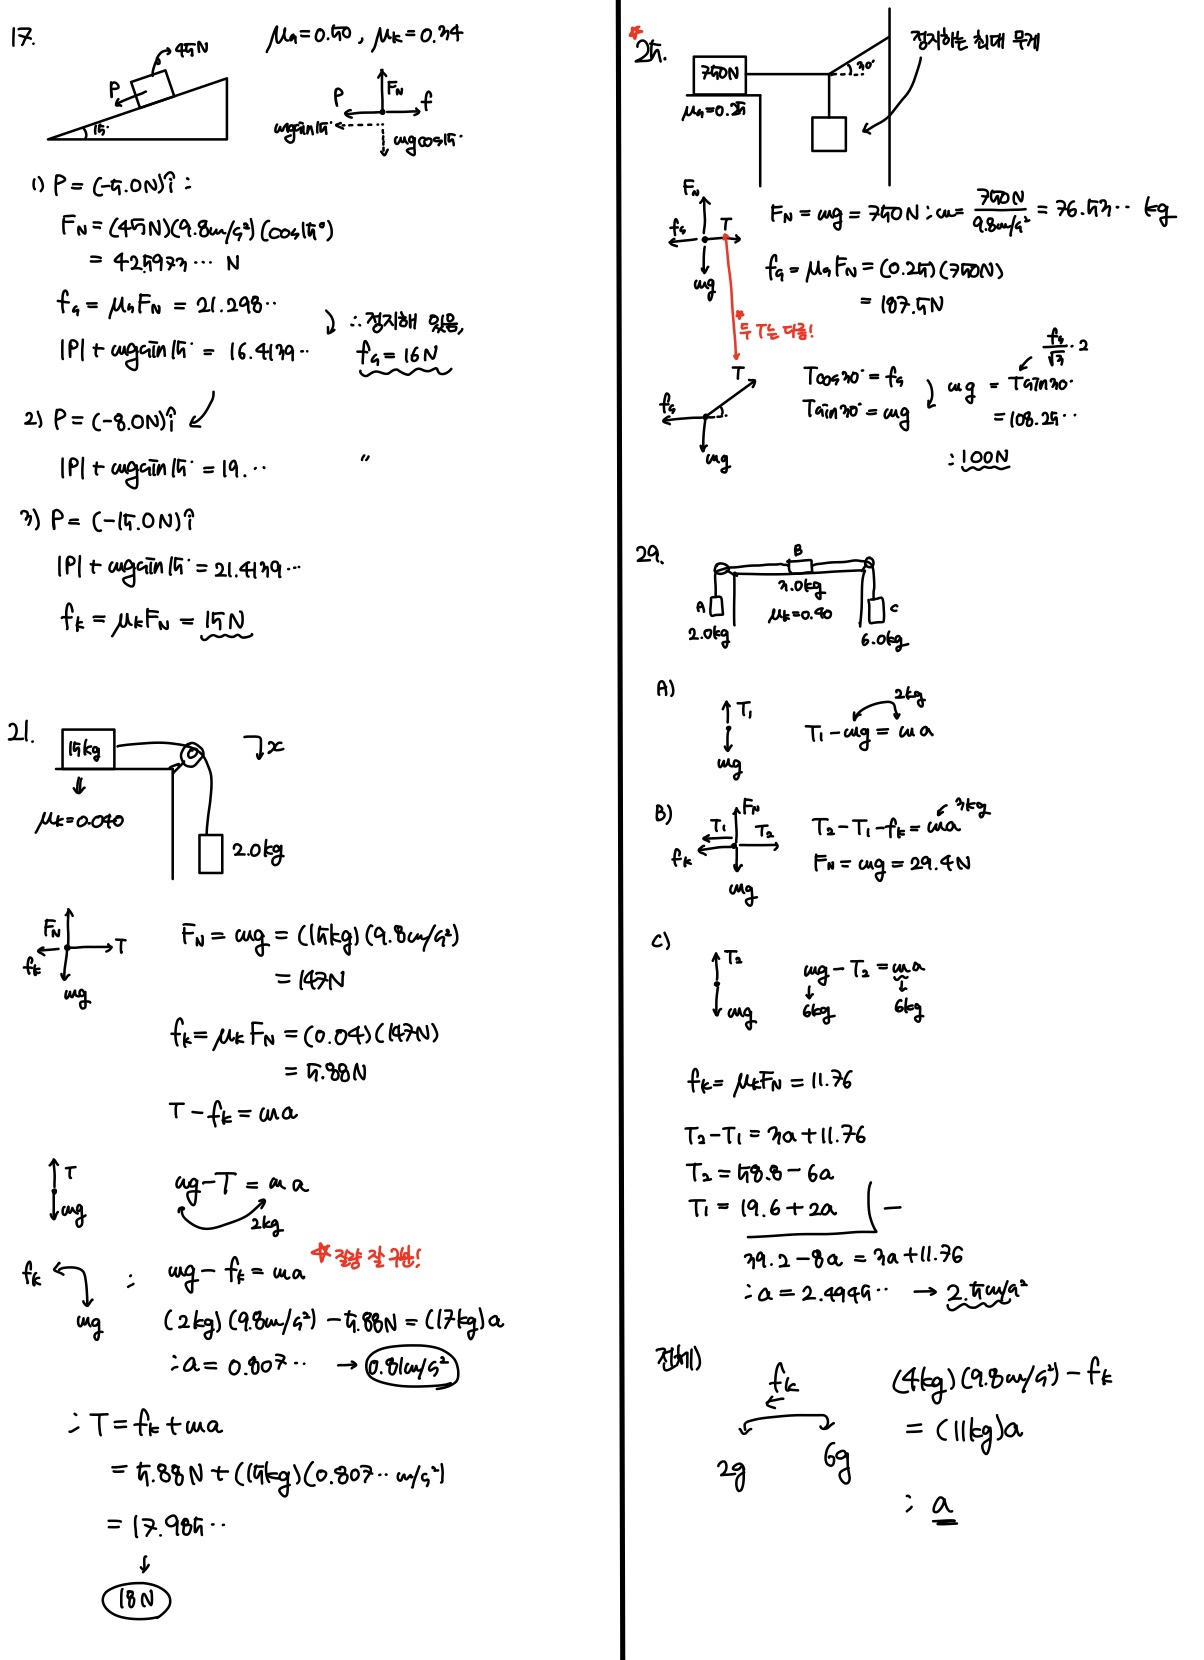 17.
μs=0.50, μk=0.34
45N
P
15°
FN
P
f
mgsin15°
mgcos15°
1) P = (-5.0N)î :
FN = (45N)(9.8m/s²)(cos15°)
= 425973… N
fs = μsFN = 21.298‥
|P| + mgsin15° = 16.4139‥
∴ 정지해 있음,
fs = 16N
2) P = (-8.0N)î
|P| + mgsin15° = 19.‥
〃
3) P = (-15.0N)î
|P| + mgsin15° = 21.4139…
fk = μkFN = 15N
21.
15kg
x
μk=0.040
2.0kg
FN
T
fk
mg
FN = mg = (15kg)(9.8m/s²)
= 147N
fk = μkFN = (0.04)(147N)
= 5.88N
T-fk = ma
T
mg
mg-T = ma
2kg
☆ 질량 잘 구분!
fk
mg
: mg - fk = ma
(2kg)(9.8m/s²) - 5.88N = (17kg)a
∴a = 0.807‥ → 0.81m/s²
∴ T = fk + ma
= 5.88N + (15kg)(0.807‥ m/s²)
= 17.985‥
↓
18N
☆
25.
750N
30°
정지하는 최대 무게
μs=0.25
FN
fs
T
mg
FN = mg = 750N ∴m = 750N/9.8m/s² = 76.53‥ kg
fs = μsFN = (0.25)(750N)
= 187.5N
☆ 두 T는 다름!
T
fs
mg
Tcos30° = fs
Tsin30° = mg
fs/√3 · 2
mg = Tsin30°
= 108.25‥
∴ 100N
29.
B
3.0kg
A
μk=0.40
C
2.0kg
6.0kg
A)
T1
mg
2kg
T1 - mg = ma
B)
FN
T1
T2
fk
mg
3kg
T2-T1-fk = ma
FN = mg = 29.4N
C)
T2
mg
mg - T2 = ma
6kg
6kg
fk = μkFN = 11.76
T2-T1 = 3a+11.76
T2 = 58.8-6a
T1 = 19.6+2a
39.2-8a = 3a+11.76
∴a = 2.4945‥ → 2.5m/s²
전체)
fk
2g
6g
(4kg)(9.8m/s²) - fk
= (11kg)a
∴ a